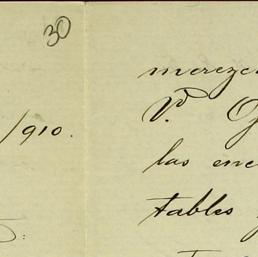 30
/910.
merezca
V. O
las ene
tables